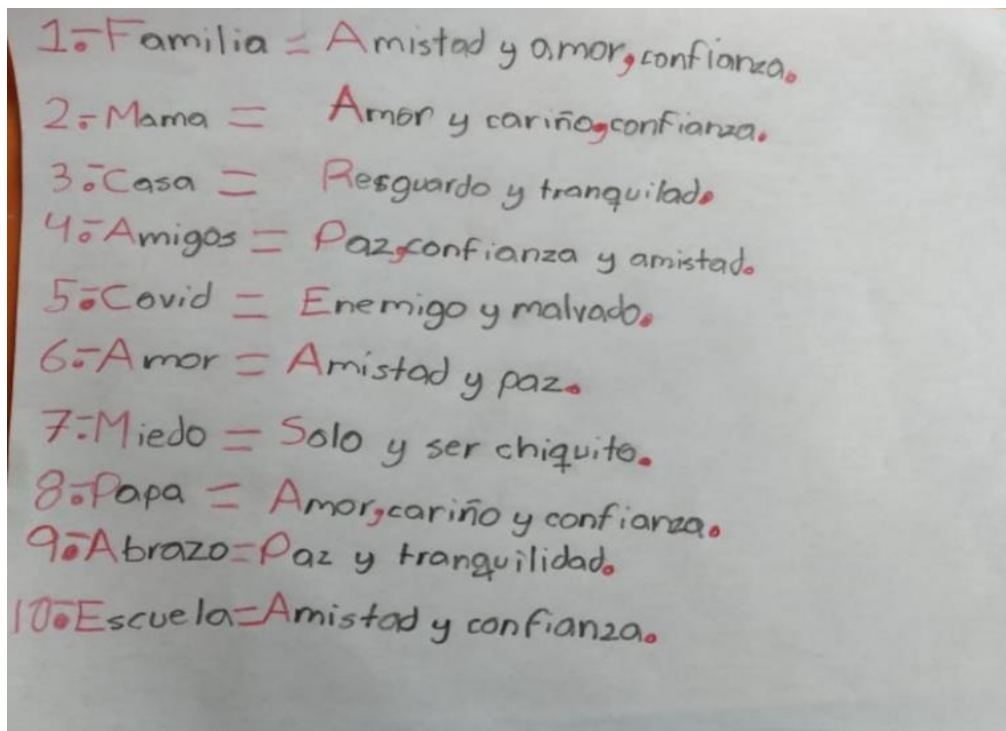 1.-Familia = Amistad y amor, confianza.
2.-Mama = Amor y cariño, confianza.
3.-Casa = Resguardo y tranquilad.
4.-Amigos = Paz, confianza y amistad.
5.-Covid = Enemigo y malvado.
6.-Amor = Amistad y paz.
7.-Miedo = Solo y ser chiquito.
8.-Papa = Amor, cariño y confianza.
9.-Abrazo=Paz y tranquilidad.
10.-Escuela=Amistad y confianza.